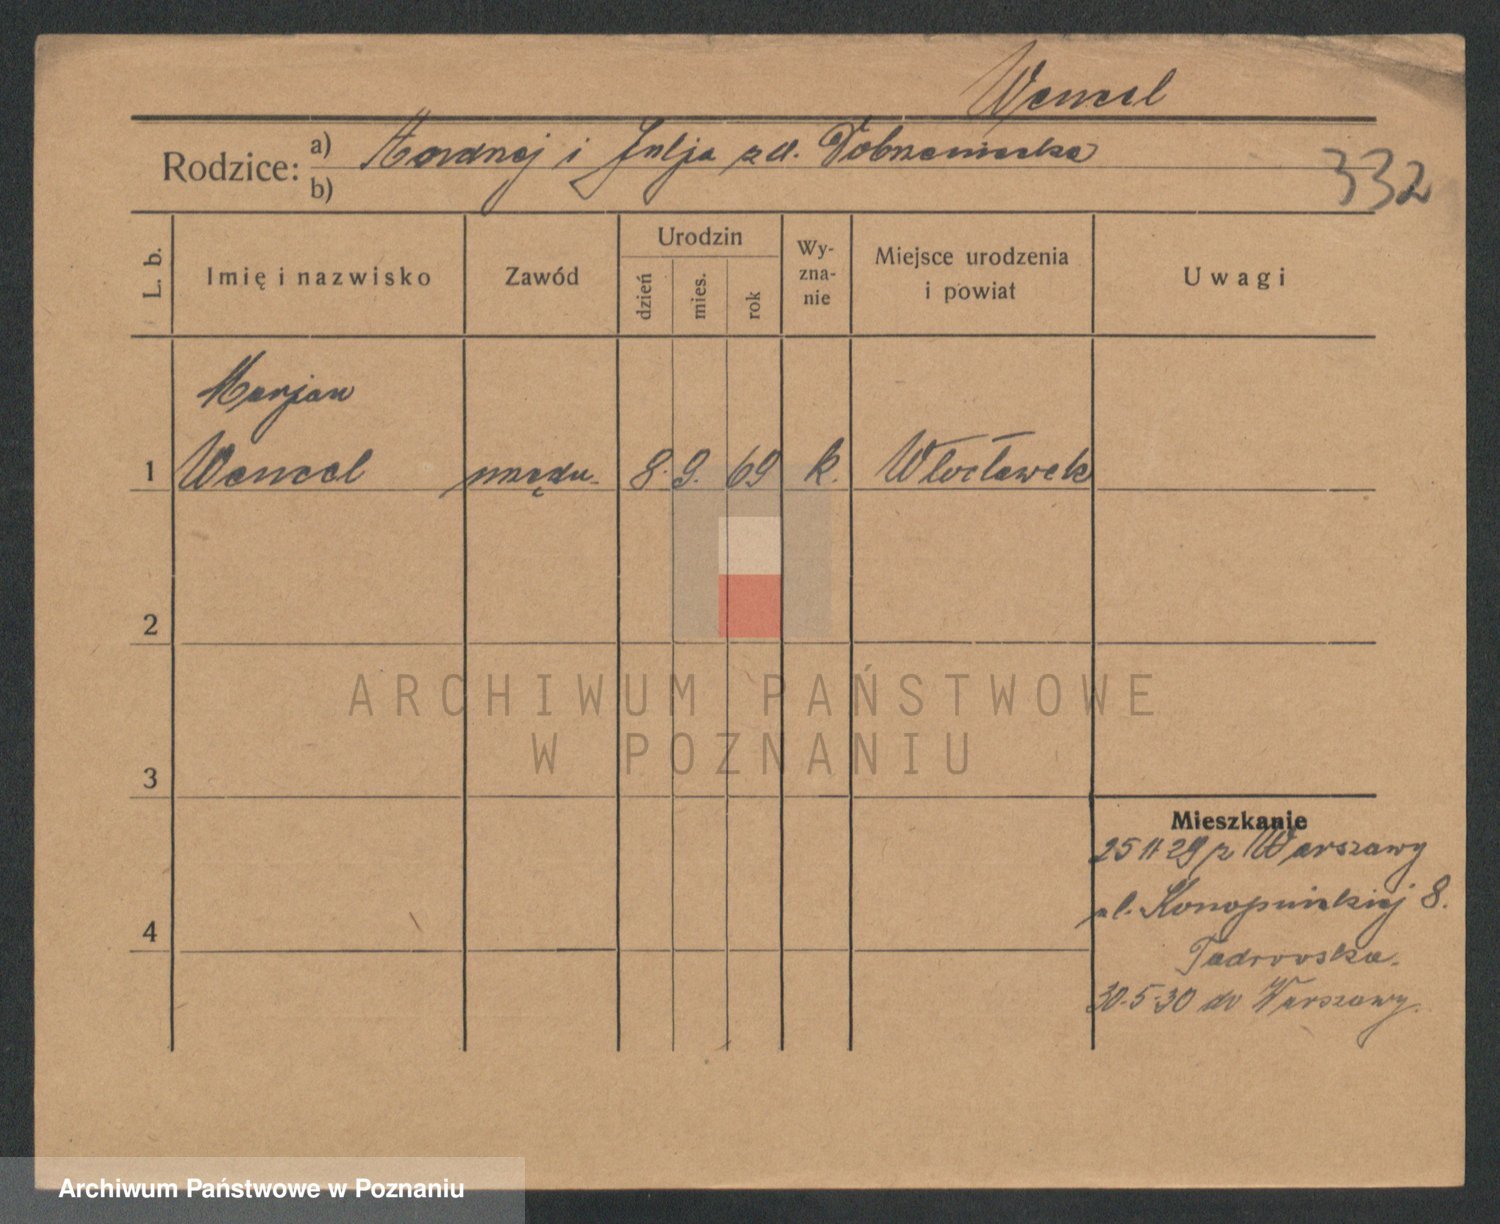 Wencel
Rodzice: a) Andrzej i Julja z d. Dobrzeniecka
b)
332
L. b.
Imię i nazwisko
Zawód
Urodzin
dzień
mies.
rok
Wy-
zna-
nie
Miejsce urodzenia
i powiat
Uwagi
Marjan
1 Wencel urzędn. 8. 9. 69 k. Włocławek
2
ARCHIWUM PAŃSTWOWE
W POZNANIU
3
Mieszkanie
25 11 29 z Warszawy
ul. Konopnickiej 8.
4
30.5.30 do Warszawy.
Archiwum Państwowe w Poznaniu